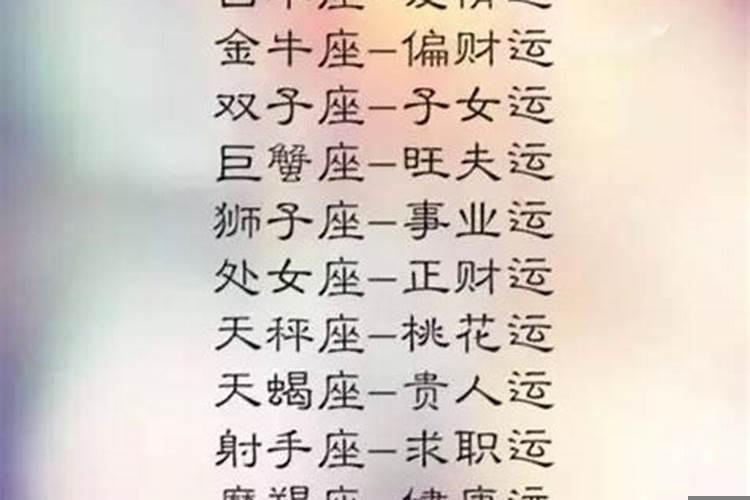 金牛座–偏财运
双子座–子女运
巨蟹座–旺夫运
狮子座–事业运
处女座–正财运
天秤座–桃花运
天蝎座–贵人运
射手座–求职运